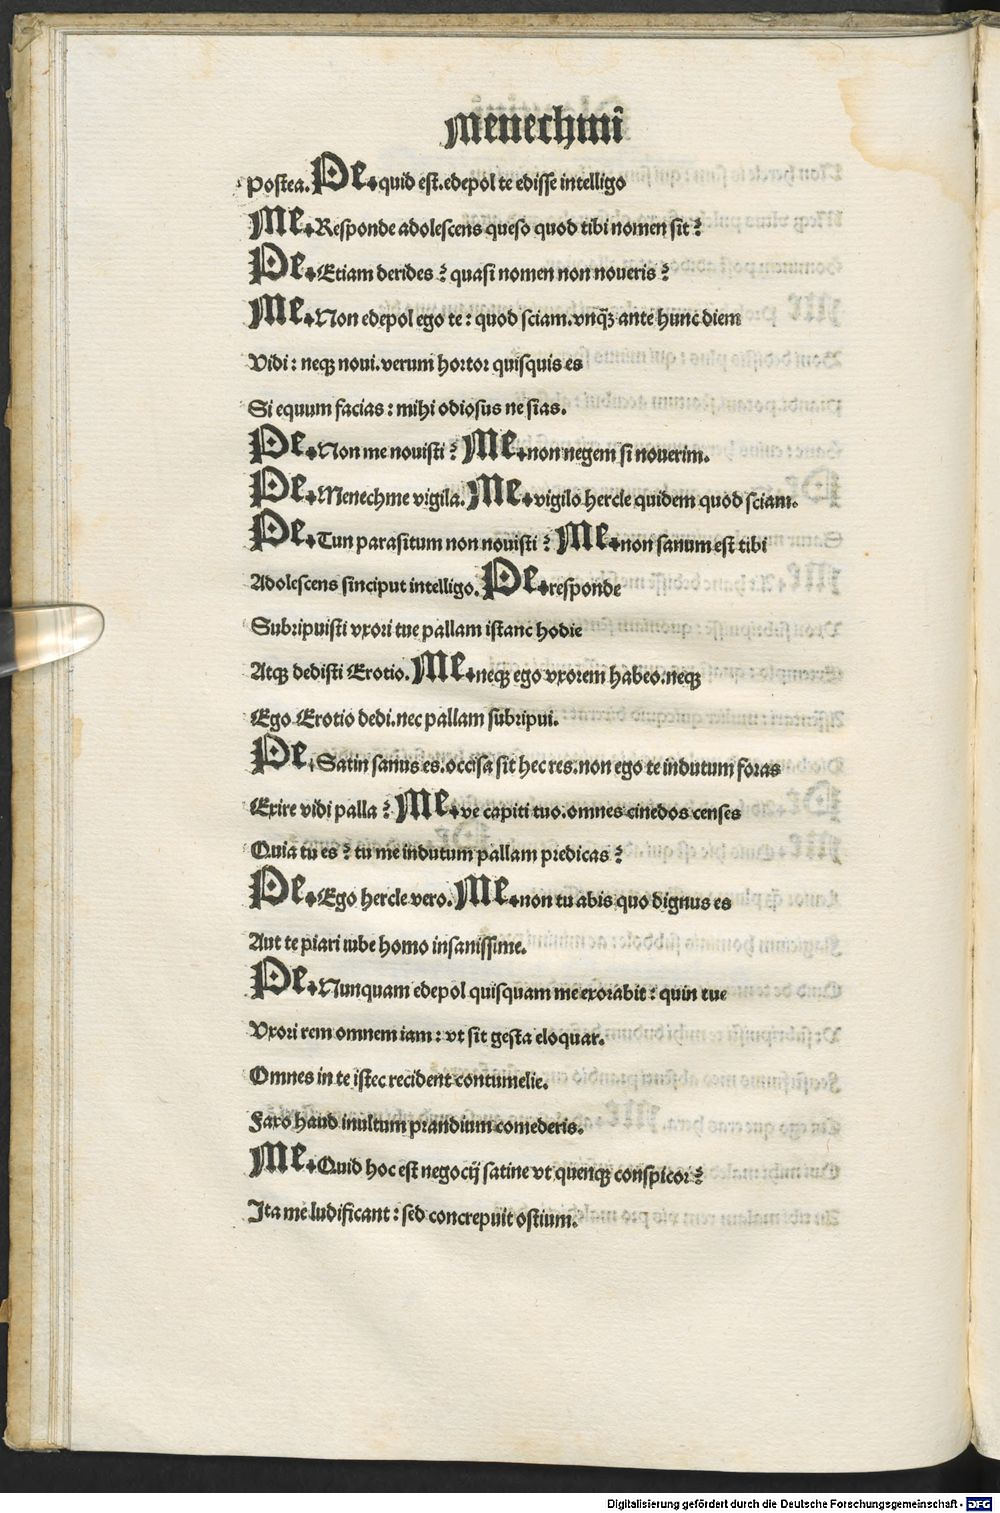 Menechmi
Postea. Pe. quid est. edepol te edisse intelligo
Me. Responde adolescens queso quod tibi nomen sit?
Pe. Etiam derides? quasi nomen non noveris?
Me. Non edepol ego te: quod sciam. vnqꝫ ante hunc diem
Vidi: neqꝫ noui. verum hortor quisquis es
Si equum facias: mihi odiosus ne sias.
Pe. Non me nouisti? Me. non negem si nouerim.
Pe. Menechme vigila. Me. vigilo hercle quidem quod sciam.
Pe. Tun parasitum non nouisti? Me. non sanum est tibi
Adolescens sinciput intelligo. Pe. responde
Subripuisti vxori tue pallam istanc hodie
Atqꝫ dedisti Erotio. Me. neqꝫ ego vxorem habeo. neqꝫ
Ego Erotio dedi. nec pallam subripui.
Pe. Satin sanus es. occisa sit hec res. non ego te indutum foras
Exire vidi palla? Me. ve capiti tuo. omnes cinedos censes
Quia tu es? tu me indutum pallam predicas?
Pe. Ego hercle vero. Me. non tu abis quo dignus es
Aut te piari iube homo insanissime.
Pe. Nunquam edepol quisquam me exorabit: quin tue
Vxori rem omnem iam: vt sit gesta eloquar.
Omnes in te istec recident contumelie.
Faxo haud inultum prandium comederis.
Me. Quid hoc est negocij satine vt quenqꝫ conspicor?
Ita me ludificant: sed concrepuit ostium.
Digitalisierung gefördert durch die Deutsche Forschungsgemeinschaft - DFG